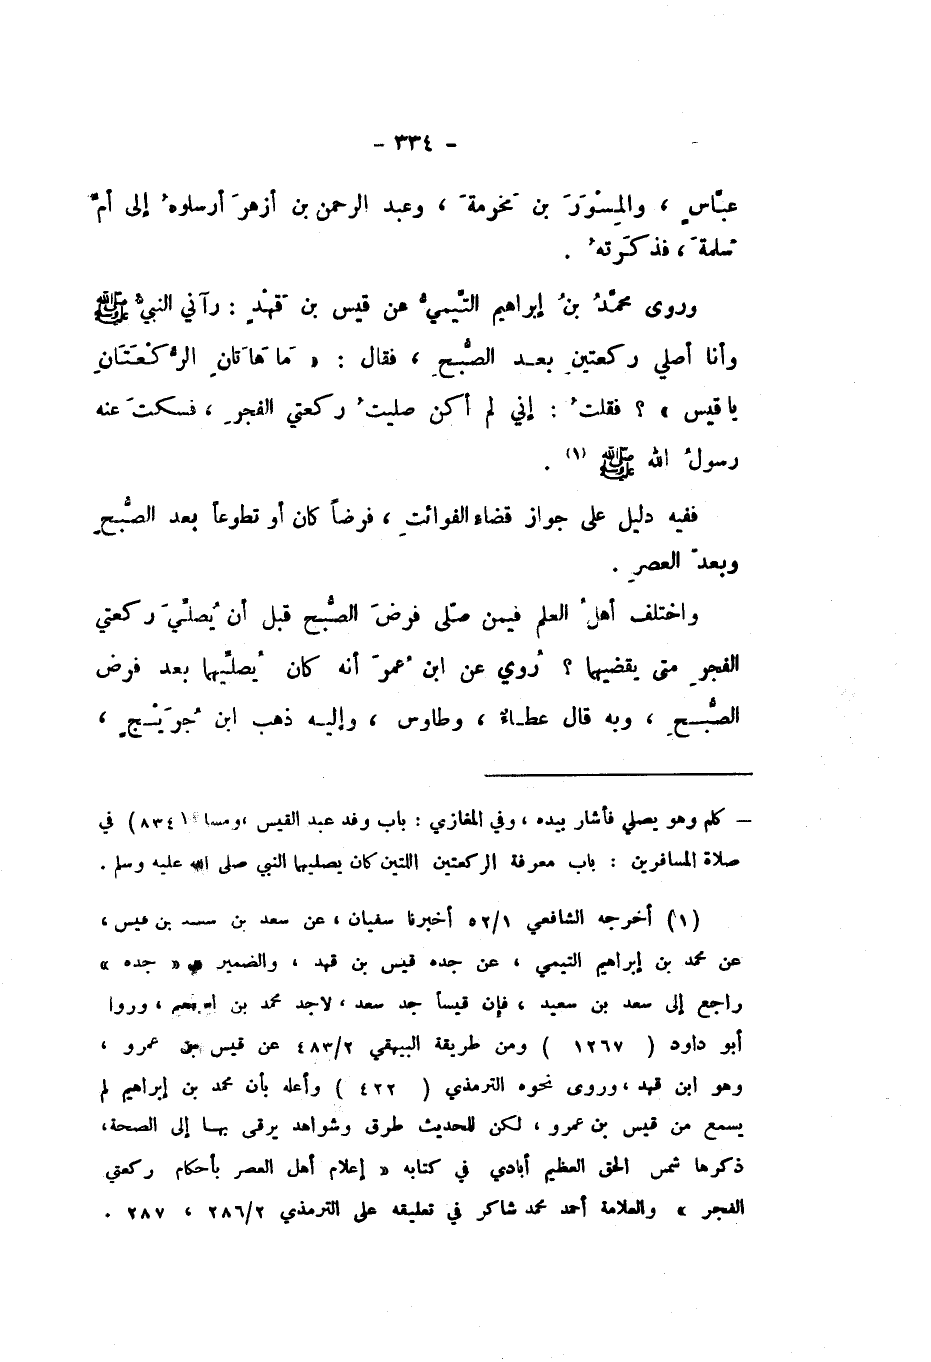 - ٣٣٤ -
عبَّاسٍ ، والمِسْوَرَ بن مَخرمةَ ، وعبد الرحمن بن أزهرَ أرسلوهُ إلى أمِّ
سَلمةَ ، فذكَرتهُ .
وروى محمَّدُ بنُ إبراهيم التَّيميُّ عن قيس بن قَهْدٍ : رآني النبيُّ ﷺ
وأنا أصلي ركعتينِ بعد الصُّبحِ ، فقال : « مَا هَاتَانِ الرَّكْعَتَانِ
يا قيس » ؟ فقلتُ : إني لم أكن صليتُ ركعتي الفجرِ ، فسكتَ عنه
رسولُ الله ﷺ (١) .
ففيه دليل على جواز قضاء الفوائتِ ، فرضاً كان أو تطوعاً بعد الصُّبحِ
وبعدَ العصرِ .
واختلف أهلُ العلم فيمن صلّى فرضَ الصُّبح قبل أن يُصلّيَ ركعتي
الفجرِ متى يقضيها ؟ رُوي عن ابن عُمرَ أنه كان يُصلِّيها بعد فرض
الصُّبحِ ، وبه قال عطاءٌ ، وطاوس ، وإليه ذهب ابن جُرَيْجٍ ،
– كلم وهو يصلي فأشار بيده ، وفي المغازي : باب وفد عبد القيس ، ومسلم (٨٣٤) في
صلاة المسافرين : باب معرفة الركعتين اللتين كان يصليها النبي صلى الله عليه وسلم .
(١) أخرجه الشافعي ٥٢/١ أخبرنا سفيان ، عن سعد بن سعيد بن قيس ،
عن محمد بن إبراهيم التيمي ، عن جده قيس بن قهد ، والضمير في « جده »
راجع إلى سعد بن سعيد ، فإن قيساً جد سعد ، لا جد محمد بن ابراهيم ، وروا
أبو داود ( ١٢٦٧ ) ومن طريقة البيهقي ٤٨٣/٢ عن قيس بن عمرو ،
وهو ابن قهد ، وروى نحوه الترمذي ( ٤٢٢ ) وأعله بأن محمد بن إبراهيم لم
يسمع من قيس بن عمرو ، لكن للحديث طرق وشواهد يرقى بها إلى الصحة ،
ذكرها شمس الحق العظيم أبادي في كتابه « إعلام أهل العصر بأحكام ركعتي
الفجر » والعلامة أحمد محمد شاكر في تعليقه على الترمذي ٢٨٦/٢ ، ٢٨٧ .